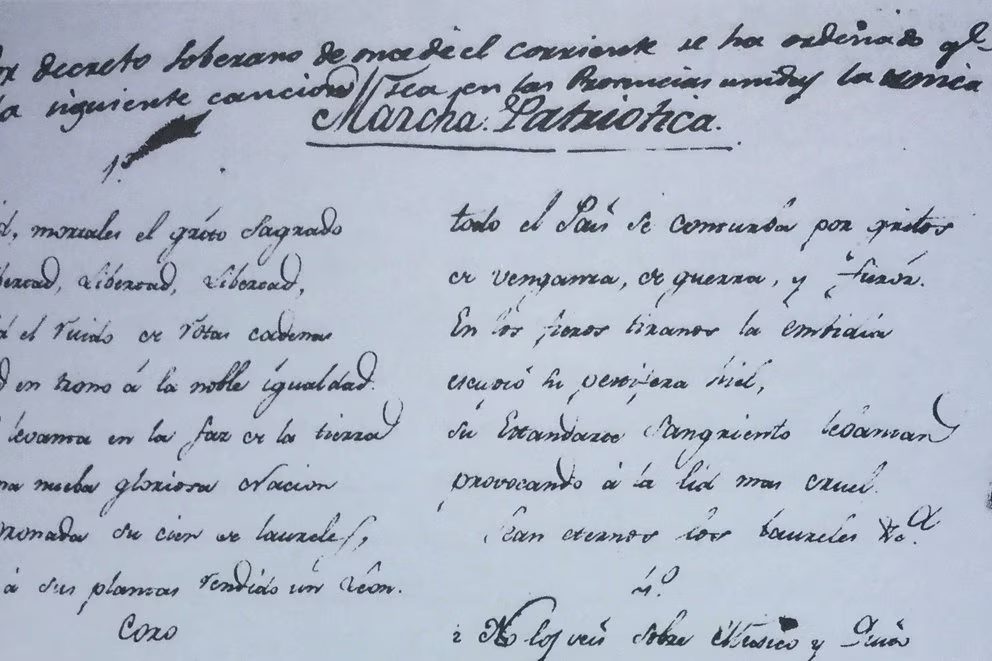 or decreto soberano de once de el corriente se ha ordenado qe
la siguiente cancion sea en las Provincias unidas la unica
Marcha Patriotica.
1.º
d, mortales el grito sagrado
bertad, Libertad, Libertad,
d el ruido de rotas cadenas
d en trono á la noble igualdad.
levanta en la faz de la tierra
na nueba gloriosa Nacion
oronada su cien de laureles,
á sus plantas rendido un Leon.
Coro
todo el País se conturba por gritos
de venganza, de guerra, y furór.
En los fieros tiranos la embidia
escupió su pestifera hiel,
su Estandarte sangriento levantan
provocando á la lid mas cruel.
Sean eternos los laureles &c.ª
4.º
¿ No los veis sobre Mexico y Quito